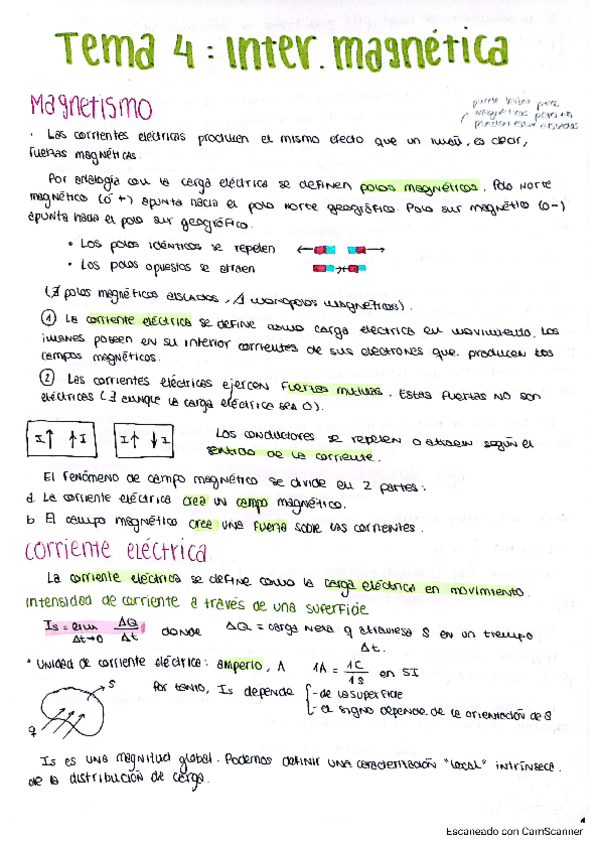 Tema 4: Inter. magnética
Magnetismo
· Las corrientes eléctricas producen el mismo efecto que un imán, es decir,
fuerzas magnéticas.
Por analogía con la carga eléctrica se definen polos magnéticos. Polo norte
magnético (o +) apunta hacia el polo norte geográfico. Polo sur magnético (o -)
apunta hacia el polo sur geográfico.
• Los polos idénticos se repelen
• Los polos opuestos se atraen
(∄ polos magnéticos aislados, ∄ monopolos magnéticos).
① La corriente eléctrica se define como carga eléctrica en movimiento. Los
imanes poseen en su interior corrientes de sus electrones que producen los
campos magnéticos.
② Las corrientes eléctricas ejercen fuerzas mutuas. Estas fuerzas no son
eléctricas (∃ aunque la carga eléctrica sea 0).
I↑ ↑I I↑ ↓I
Los conductores se repelen o atraen según el
sentido de la corriente.
El fenómeno de campo magnético se divide en 2 partes:
a. La corriente eléctrica crea un campo magnético.
b. El campo magnético crea una fuerza sobre las corrientes.
Corriente eléctrica
La corriente eléctrica se define como la carga eléctrica en movimiento.
Intensidad de corriente a través de una superficie
Is = lim Δt→0 ΔQ/Δt donde ΔQ = carga neta q atraviesa S en un tiempo
Δt.
• Unidad de corriente eléctrica: amperio, A 1A = 1C/1S en SI
S
q
Por tanto, Is depende
- de la superficie
- el signo depende de la orientación de S
Is es una magnitud global. Podemos definir una caracterización "local" intrínseca
de la distribución de carga.
1
Escaneado con CamScanner